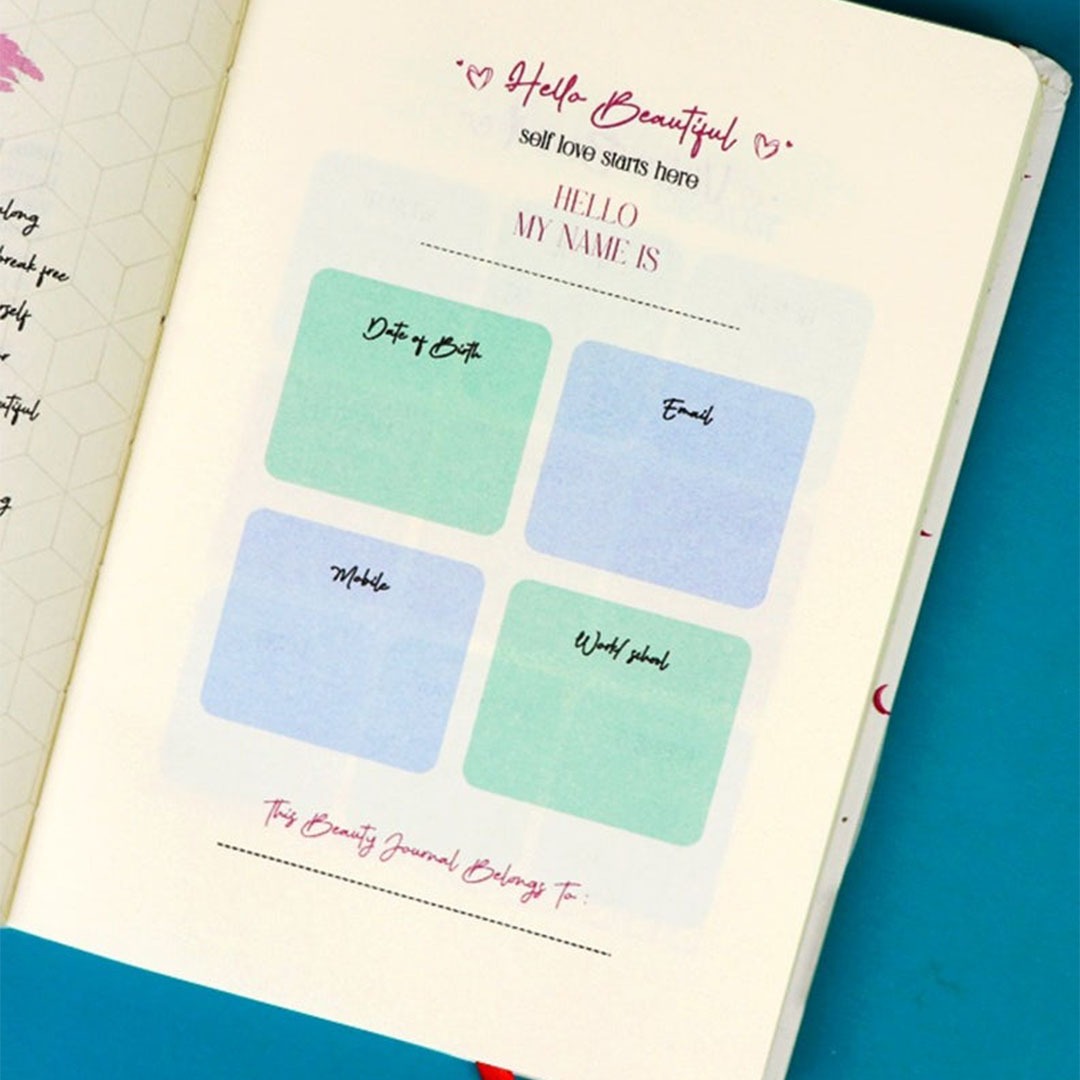 along
break free
Hello Beautiful
self love starts here
HELLO
MY NAME IS
Date of Birth
Email
Mobile
Work/ school
This Beauty Journal Belongs To :